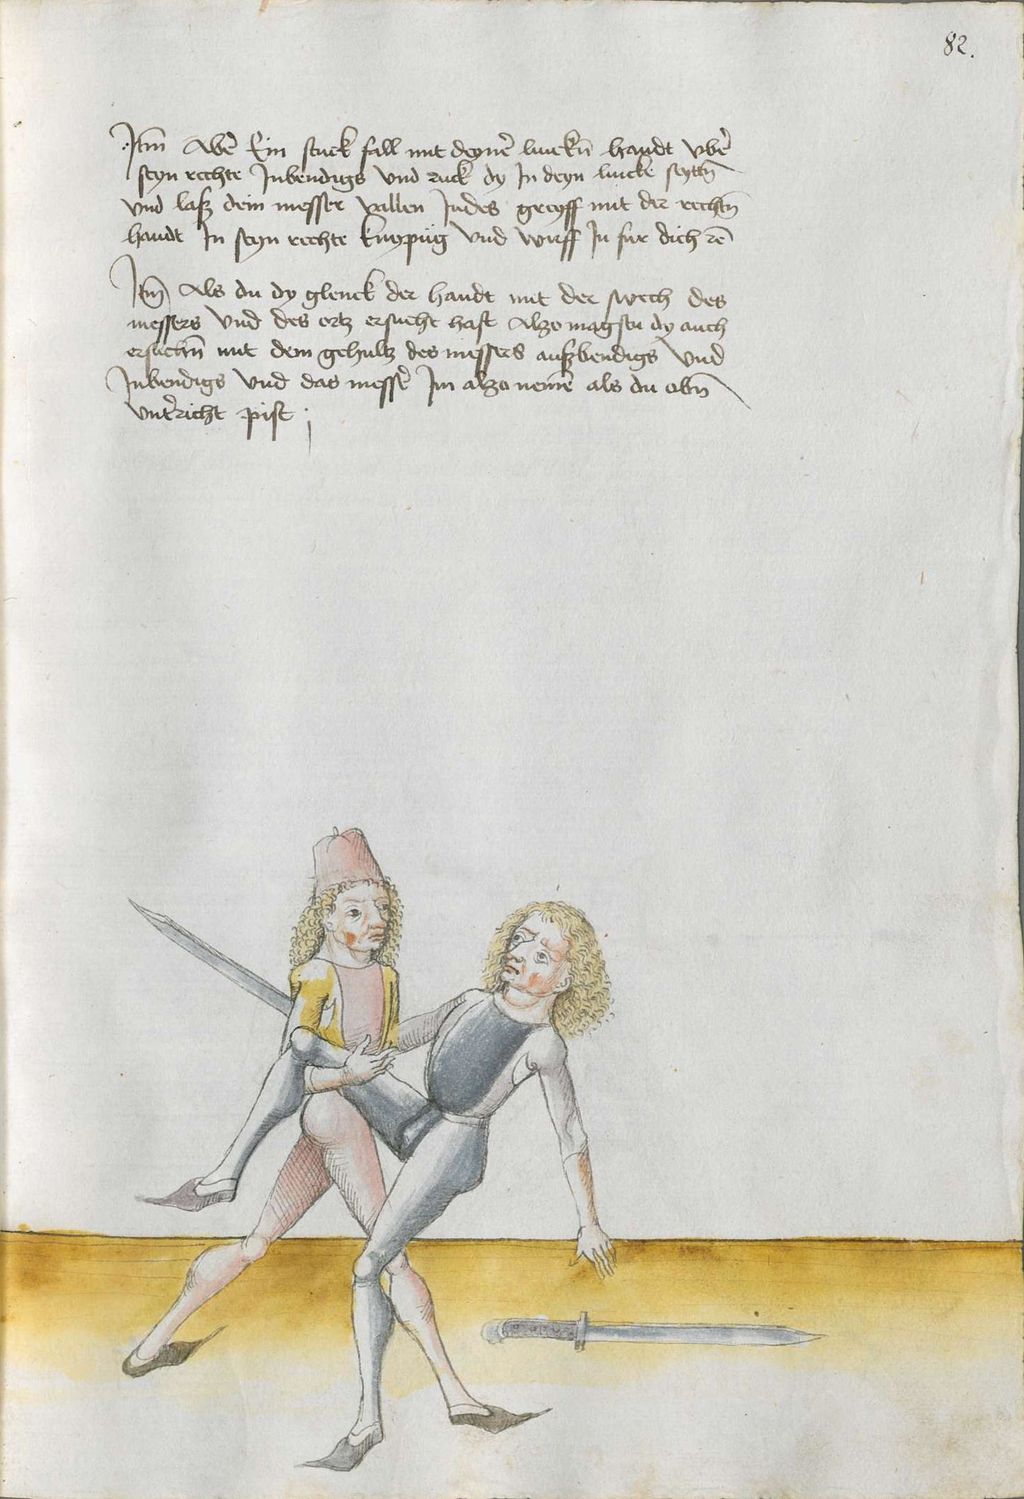 82.
Itm̄ Abē Ein stuck fall mit deynē linckn̄ handt vbē
seyn rechte Inbendigs vnd ruck dy In deyn lincke seyttn̄
vnd laß dein messer vallen Indes greyff mit der rechtn̄
handt In seyn rechte knypüg vnd wirff In fur dich rē
Itm̄ Als du dy glenck der handt mit der swech des
messers vnd des ortz ersucht hast Alzo magstu dy auch
ersuchn̄ mit dem gehultz des messers außbendigs vnd
Inbendigs vnd das messē Im alzo nemē als du obn̄
vntēricht pist